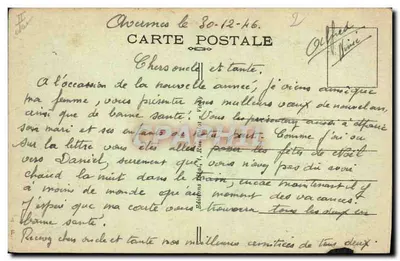 Avermes le 30-12-46.
2
CARTE POSTALE
Alfred
Chers oncle et tante.
A l'occasion de la nouvelle année, je viens ainsi que
ma femme, vous présenter nos meilleurs vœux de nouvel an,
ainsi que de bonne santé. Vous les présenterez aussi à
son mari et ses enfants Comme j'ai vu
sur la lettre vous êtes allés pour les fêtes de Noël
vers Daniel, surement que vous n'avez pas dû avoir
chaud la nuit dans le train, encore maintenant il y
a moins de monde que au moment des vacances.
J'espère que ma carte vous trouvera tous les deux en
bonne santé.
Recevez cher oncle et tante nos meilleures amitiées de tous deux.